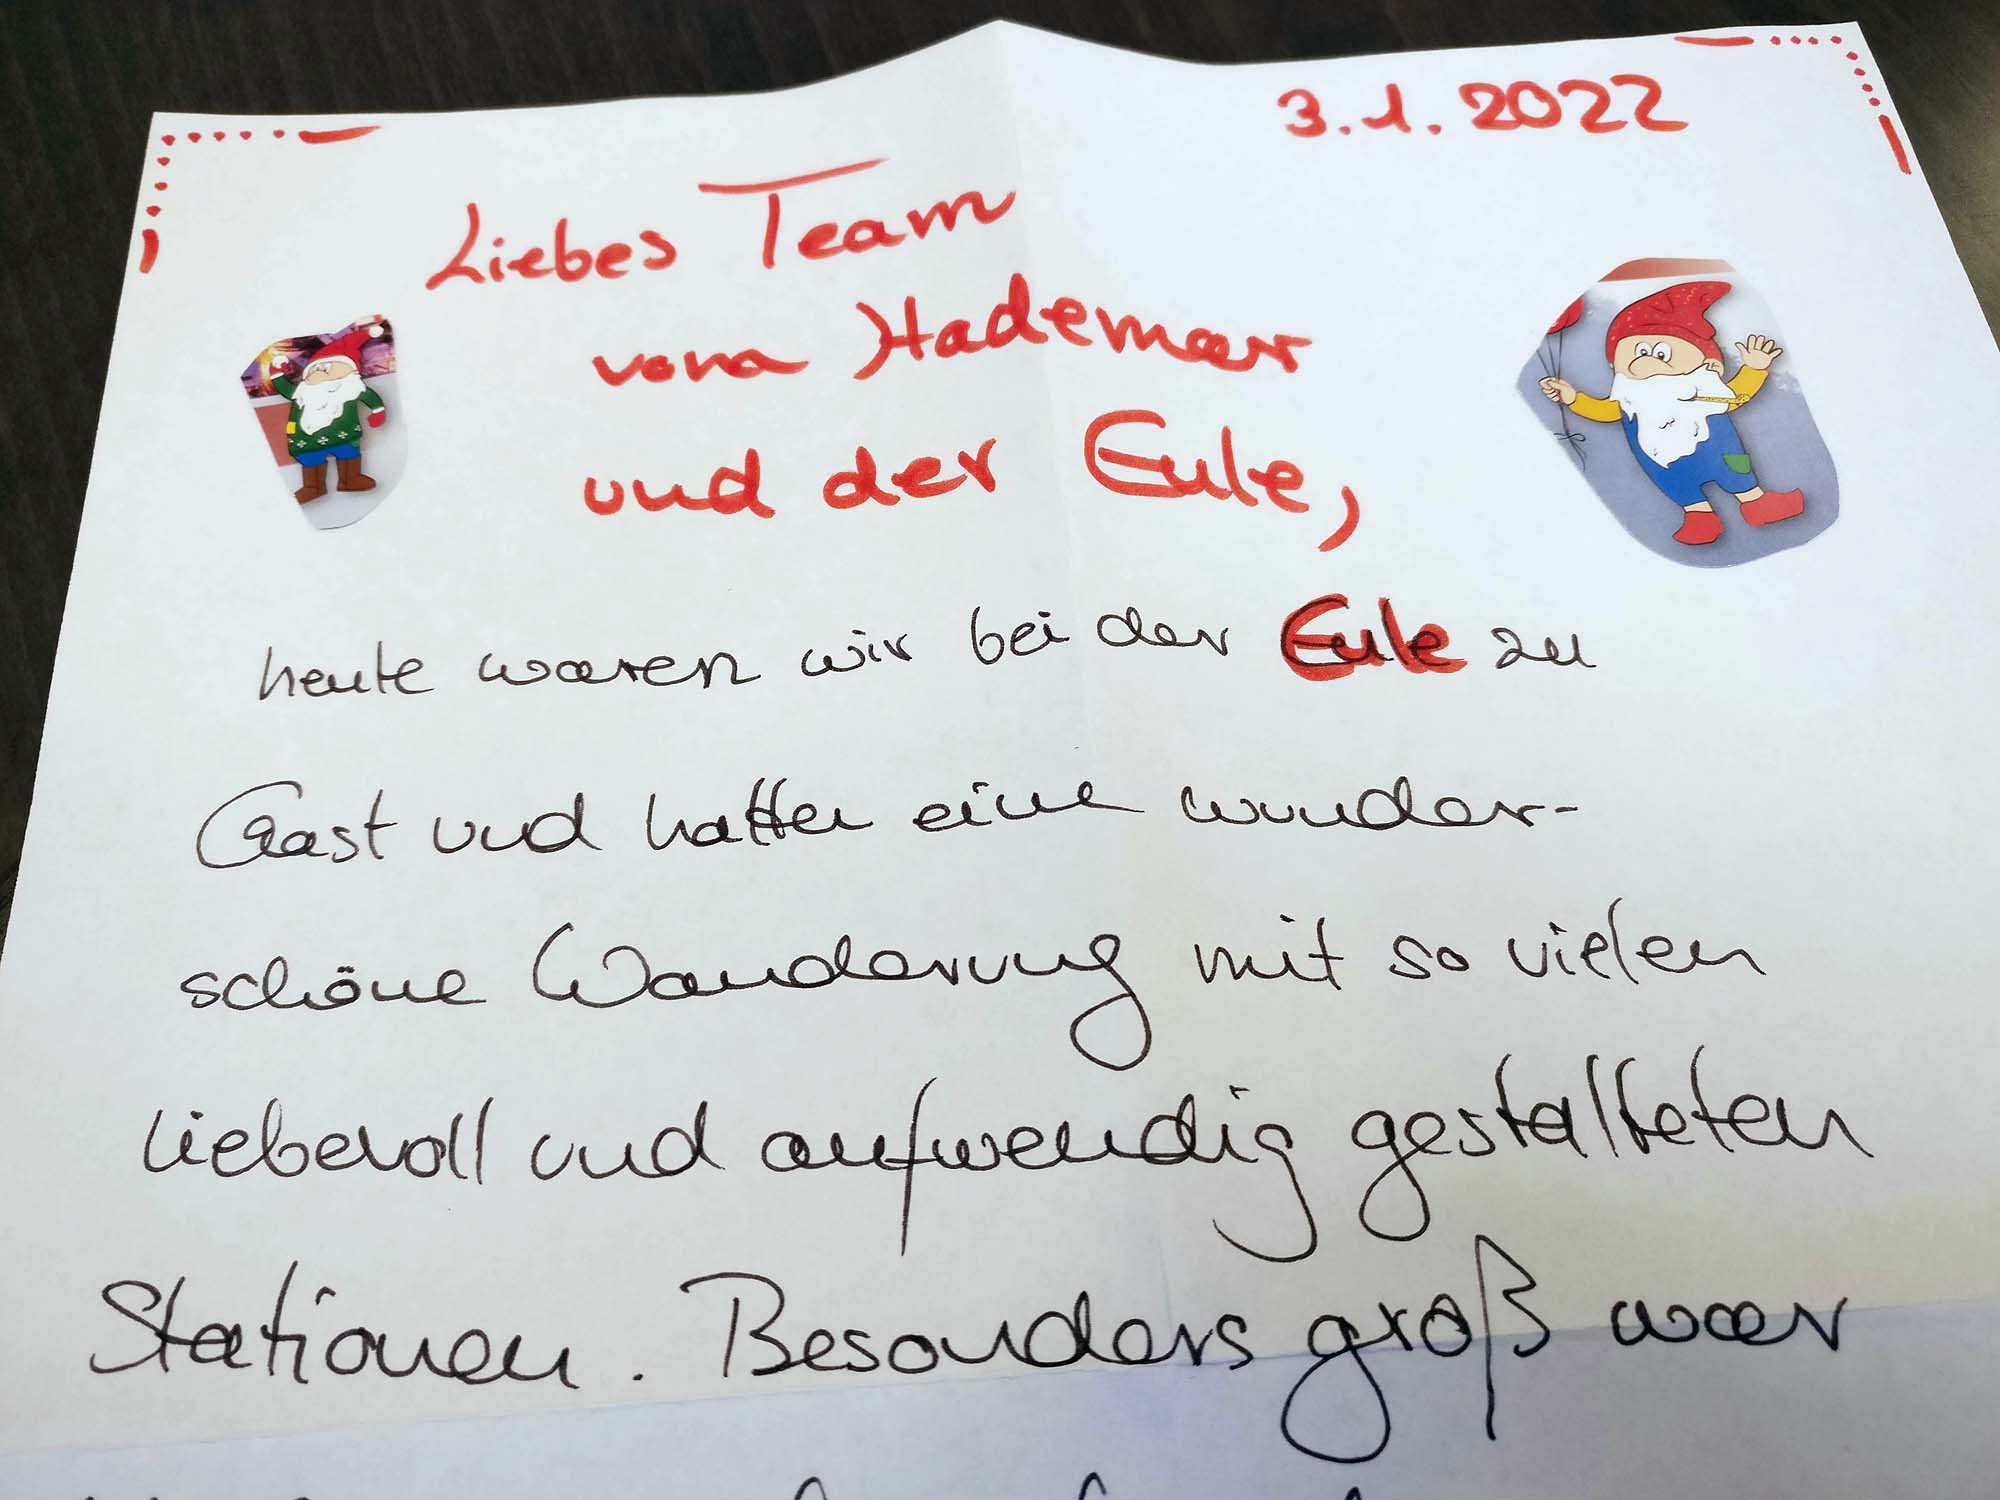 3.1.2022
Liebes Team
vom Hademar
und der Eule,
heute waren wir bei der Eule zu
Gast und hatten eine wunder-
schöne Wanderung mit so vielen
liebevoll und aufwendig gestalteten
Stationen. Besonders groß war